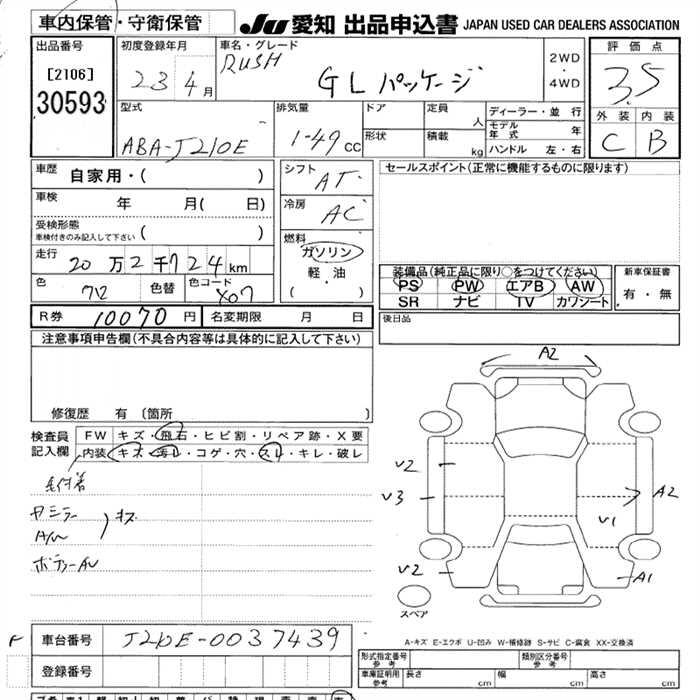 車内保管・守衛保管
JU 愛知 出品申込書 JAPAN USED CAR DEALERS ASSOCIATION
出品番号
[2106]
30593
初度登録年月
23 4月
車名・グレード
RUSH
GL パッケージ
2WD
・
4WD
評価点
3.5
外装 内装
C B
型式
ABA-J210E
排気量
1-49 CC
ドア
形状
定員
人
積載
kg
ディーラー・並行
モデル年式 年
ハンドル 左・右
車歴
自家用・( )
車検
年 月( 日)
受検形態
車検付きのみ記入して下さい ( )
走行
20万2千724km
色
色替
色コード
X07
R券 10070円
名変期限 月 日
シフト
AT
冷房
AC
燃料
ガソリン
軽・油
( ・ )
セールスポイント(正常に機能するものに限ります)
装備品(純正品に限り○をつけてください)
PS PW エアB AW
SR ナビ TV カワシート
新車保証書
有・無
後日品
注意事項申告欄(不具合内容等は具体的に記入して下さい)
修復歴 有〔箇所 〕
検査員
記入欄
FW キズ・飛石・ヒビ割・リペア跡・X要
内装 キズ・汚レ・コゲ・穴・スレ・キレ・破レ
A2
V2
V3
A2
V1
V2
A1
スペア
A-キズ E-エクボ U-凹み W-補修跡 S-サビ C-腐食 XX-交換済
F 車台番号 J210E-0037439
登録番号
形式指定番号
参考
類別区分番号
参考
車庫証明用
参考
長さ cm
幅 cm
高さ cm